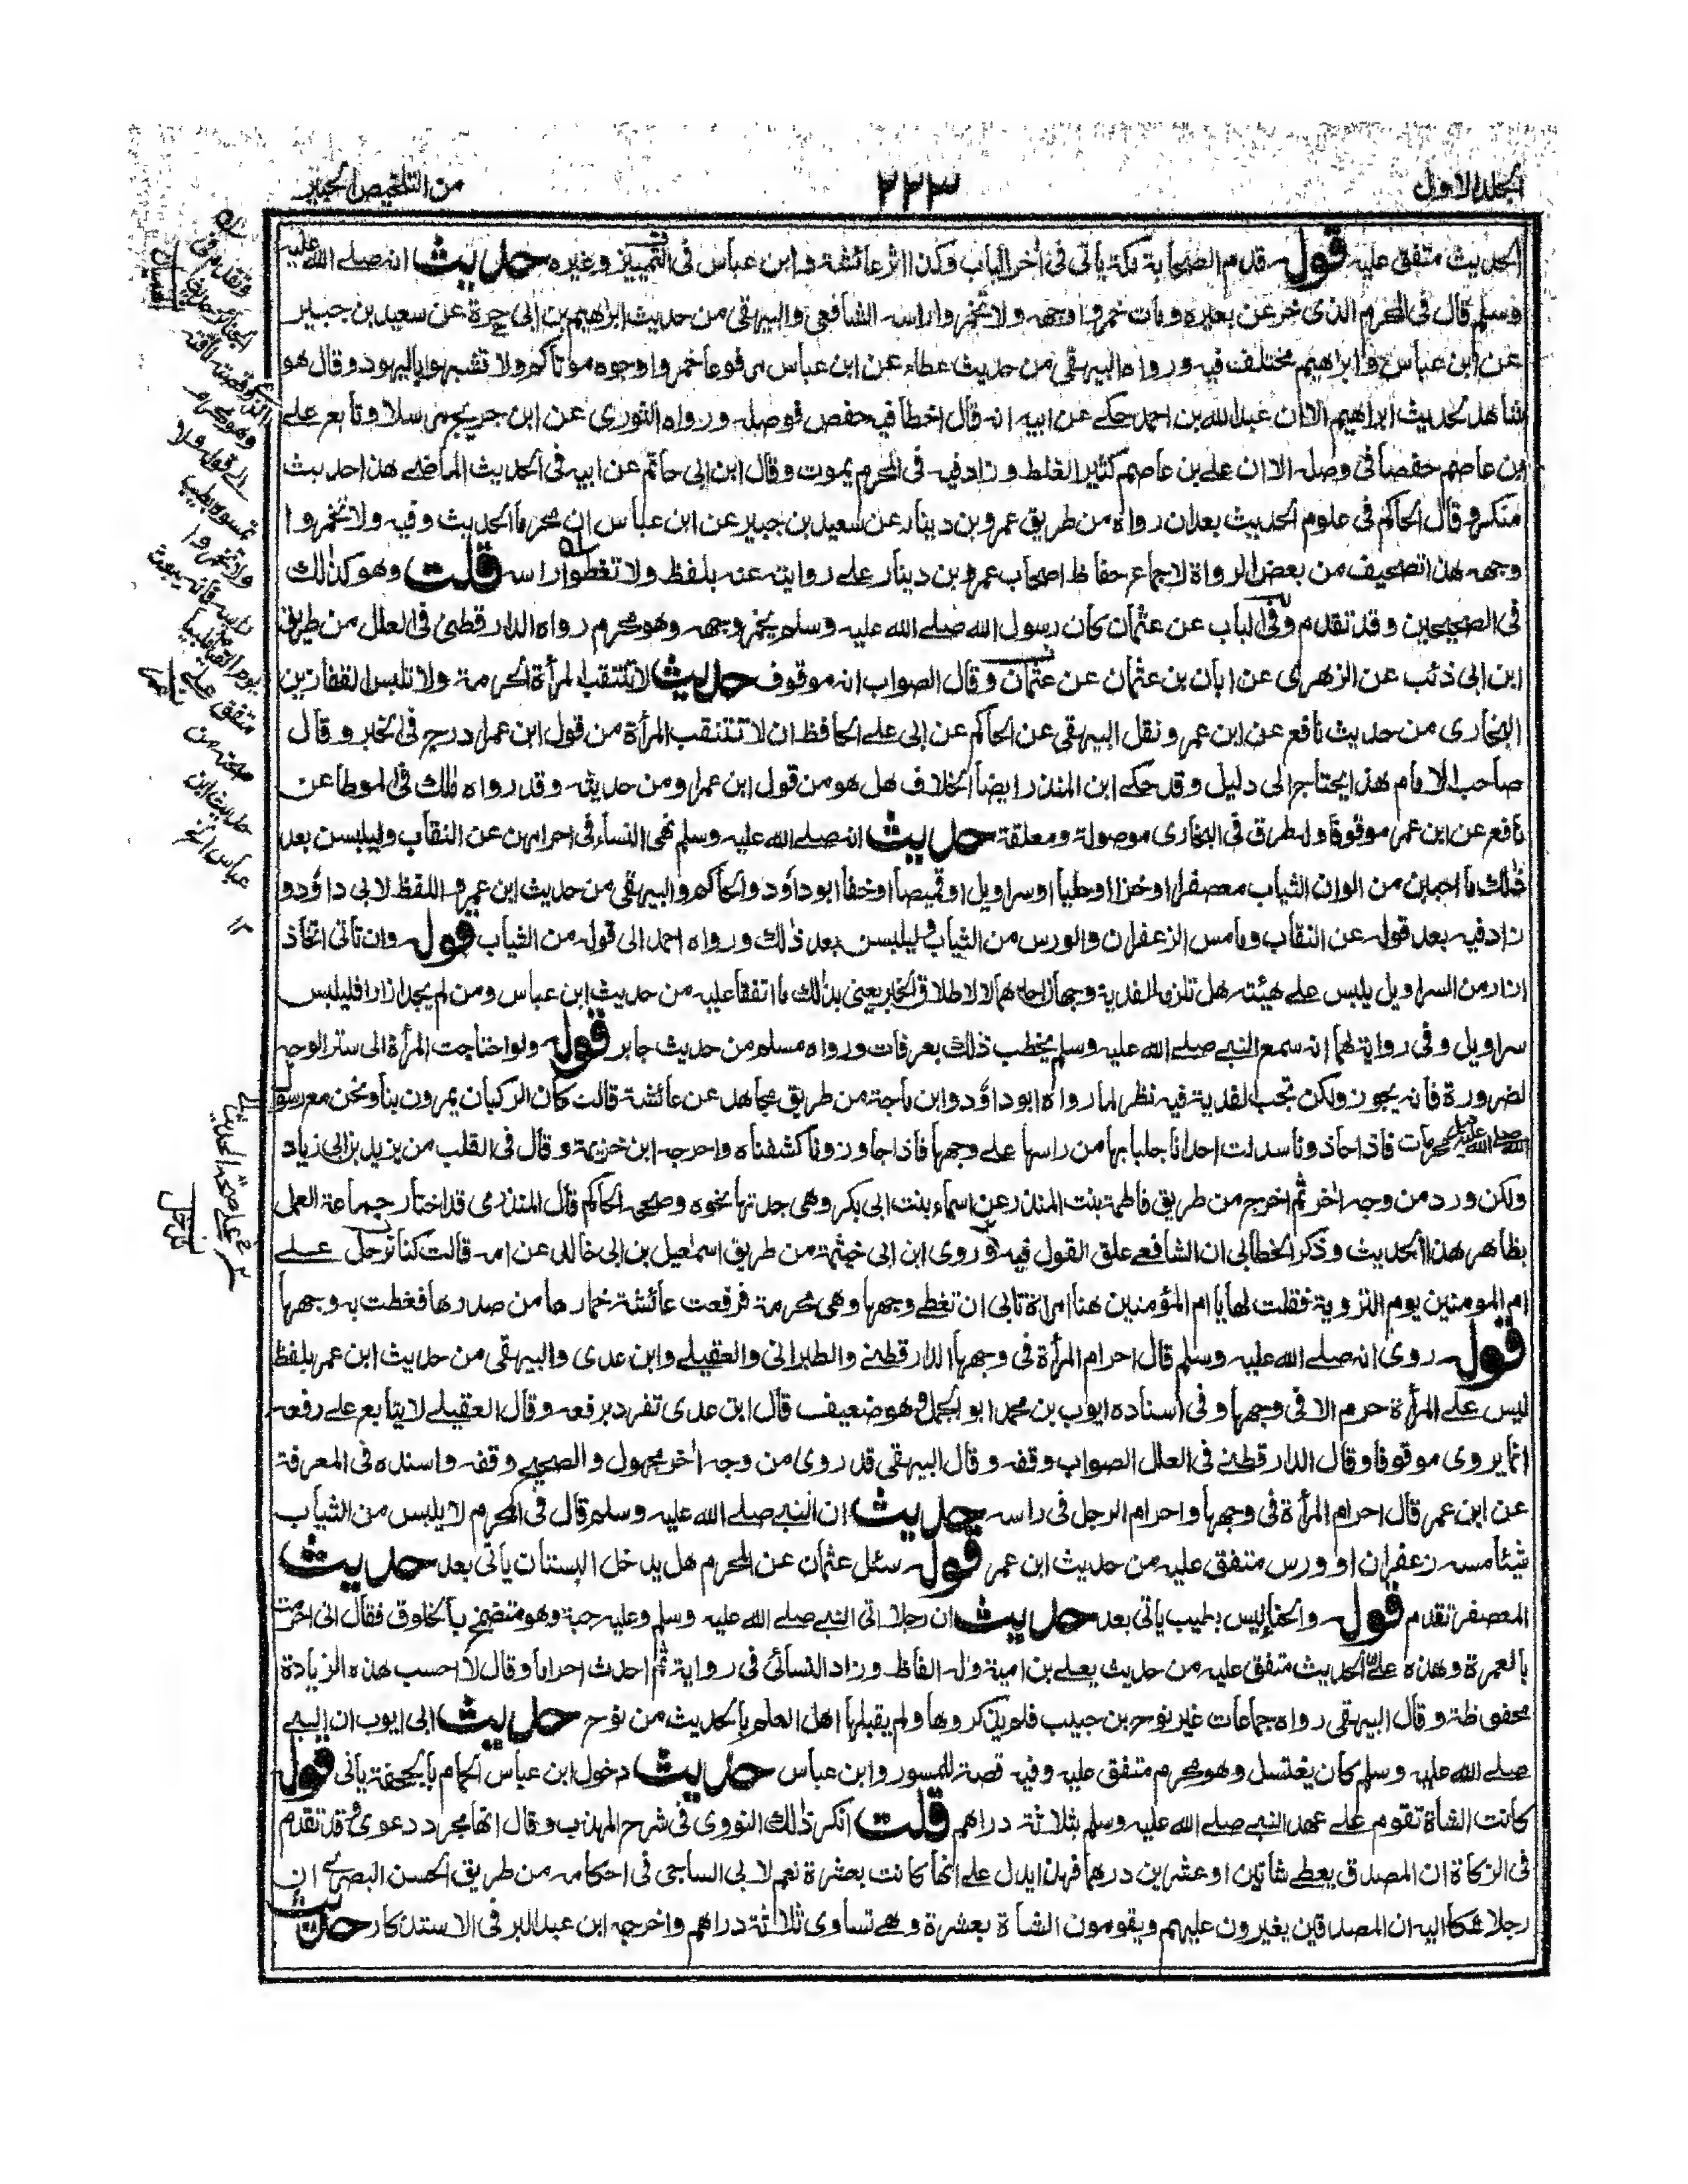 الجلد الاول ٢٢٣ من التلخيص الحبير
الحديث متفق عليه قوله قدم الصحابة مكة ياتى فى اخر الباب وكذا اثر عائشة وابن عباس فى التمييز وغيره حديث انه صلى الله عليه
وسلم قال فى المحرم الذى خر عن بعيره ومات خمروا وجهه ولا تخمروا راسه الشافعى والبيهقى من حديث ابراهيم بن ابى حرة عن سعيد بن جبير
عن ابن عباس وابراهيم مختلف فيه ورواه البيهقى من حديث عطاء عن ابن عباس مرفوعا خمروا وجوه موتاكم ولا تشبهوا باليهود وقال هو
شاهد لحديث ابراهيم الا ان عبد الله بن احمد حكى عن ابيه انه قال اخطأ فيه حفص فوصله ورواه الثورى عن ابن جريج مرسلا وتابعه على
بن عاصم حفصا فى وصله الا ان على بن عاصم كثير الغلط وزاد فيه فى المحرم يموت وقال ابن ابى حاتم عن ابيه فى الحديث الماضى هذا حديث
منكر وقال الحاكم فى علوم الحديث بعد ان رواه من طريق عمرو بن دينار عن سعيد بن جبير عن ابن عباس ان محرما الحديث وفيه ولا تخمروا
وجهه هذا تصحيف من بعض الرواة لاجماع حفاظ اصحاب عمرو بن دينار على روايته عنه بلفظ ولا تغطوا راسه قلت وهو كذلك
فى الصحيحين وقد تقدم وفى الباب عن عثمان كان رسول الله صلى الله عليه وسلم يخمر وجهه وهو محرم رواه الدارقطنى فى العلل من طريق
ابن ابى ذئب عن الزهرى عن ابان بن عثمان عن عثمان وقال الصواب انه موقوف حديث لا تنتقب المرأة المحرمة ولا تلبس القفازين
البخارى من حديث نافع عن ابن عمر ونقل البيهقى عن الحاكم عن ابى على الحافظ ان لا تتنقب المرأة من قول ابن عمر ادرج فى الخبر وقال
صاحب الامام هذا يحتاج الى دليل وقد حكى ابن المنذر ايضا الخلاف هل هو من قول ابن عمر او من حديثه وقد رواه مالك فى الموطا عن
نافع عن ابن عمر موقوفا وله طرق فى البخارى موصولة ومعلقة حديث انه صلى الله عليه وسلم نهى النساء فى احرامهن عن النقاب وليلبسن بعد
ذلك ما احببن من الوان الثياب معصفرا او خزا او حليا او سراويل او قميصا او خفا ابو داؤد والحاكم والبيهقى من حديث ابن عمر واللفظ لابى داؤد و
زاد فيه بعد قوله عن النقاب وما مس الزعفران والورس من الثياب وليلبسن بعد ذلك ورواه احمد الى قوله من الثياب قوله وان تاتى اتخاذ
ازار من السراويل يلبس على هيئته هل تلزم الفدية وجهان احدهما لا لاطلاق الخبر يعنى بذلك ما اتفقا عليه من حديث ابن عباس ومن لم يجد ازارا فليلبس
سراويل وفى رواية لهما انه سمع النبى صلى الله عليه وسلم يخطب ذلك بعرفات ورواه مسلم من حديث جابر قوله ولو احتاجت المرأة الى ستر الوجه
لضرورة فانه يجوز ولكن تجب الفدية فيه نظر لما رواه ابو داؤد وابن ماجة من طريق مجاهد عن عائشة قالت كان الركبان يمرون بنا ونحن مع رسول
الله صلى الله عليه وسلم محرمات فاذا حاذونا سدلت احدانا جلبابها من راسها على وجهها فاذا جاوزونا كشفناه واخرجه ابن خزيمة وقال فى القلب من يزيد بن ابى زياد
ولكن ورد من وجه اخر ثم اخرج من طريق فاطمة بنت المنذر عن اسماء بنت ابى بكر وهى جدتها نحوه وصححه الحاكم قال المنذرى قد اختار جماعة العمل
بظاهر هذا الحديث وذكر الخطابى ان الشافعى علق القول فيه وروى ابن ابى خيثمة من طريق اسمعيل بن ابى خالد عن امه قالت كنا ندخل على
ام المومنين يوم التروية فقلت لها يا ام المؤمنين هنا امرأة تابى ان تغطى وجهها وهى محرمة فرفعت عائشة خمارها من صدرها فغطت به وجهها
قوله روى انه صلى الله عليه وسلم قال احرام المرأة فى وجهها الدارقطنى والطبرانى والعقيلى وابن عدى والبيهقى من حديث ابن عمر بلفظ
ليس على المرأة حرم الا فى وجهها وفى اسناده ايوب بن محمد ابو الجمل وهو ضعيف قال ابن عدى تفرد برفعه وقال العقيلى لا يتابع على رفعه
انما يروى موقوفا وقال الدارقطنى فى العلل الصواب وقفه وقال البيهقى قد روى من وجه اخر مجهول والصحيح وقفه واسنده فى المعرفة
عن ابن عمر قال احرام المرأة فى وجهها واحرام الرجل فى راسه حديث ان النبى صلى الله عليه وسلم قال فى المحرم لا يلبس من الثياب
شيئا مسه زعفران او ورس متفق عليه من حديث ابن عمر قوله سئل عثمان عن المحرم هل يدخل البستان ياتى بعد حديث
المعصفر تقدم قوله والحناء ليس بطيب ياتى بعد حديث ان رجلا اتى النبى صلى الله عليه وسلم وعليه جبة وهو متضمخ بالخلوق فقال انى احرمت
بالعمرة وهذه على الحديث متفق عليه من حديث يعلى بن امية وله الفاظ وزاد النسائى فى رواية ثم احدث احراما وقال لا احسب هذه الزيادة
محفوظة وقال البيهقى رواه جماعات غير نوح بن حبيب فلم يذكروها ولم يقبلها اهل العلم بالحديث من نوح حديث ابى ايوب ان النبى
صلى الله عليه وسلم كان يغتسل وهو محرم متفق عليه وفيه قصة للمسور وابن عباس حديث دخول ابن عباس الحمام بالجحفة ياتى قوله
كانت الشاة تقوم على عهد النبى صلى الله عليه وسلم بثلاثة دراهم قلت انكر ذلك النووى فى شرح المهذب وقال انها مجرد دعوى وقد تقدم
فى الزكاة ان المصدق يعطى شاتين او عشرين درهما فهذا يدل على انها كانت بعشرة نعم لابى الساجى فى احكامه من طريق الحسن البصرى ان
رجلا شكا اليه ان المصدقين يغيرون عليهم ويقومون الشاة بعشرة وهى تساوى ثلاثة دراهم واخرجه ابن عبد البر فى الاستذكار حديث
وتقدم فى
الجنائز
الذى وقصته ناقته
وهو محرم
الى قوله ولا
تمسوه بطيب
ولا تخمروا
راسه فانه يبعث
يوم القيامة ملبيا
متفق على
صحته من
حديث ابن
عباس الخ
١٢